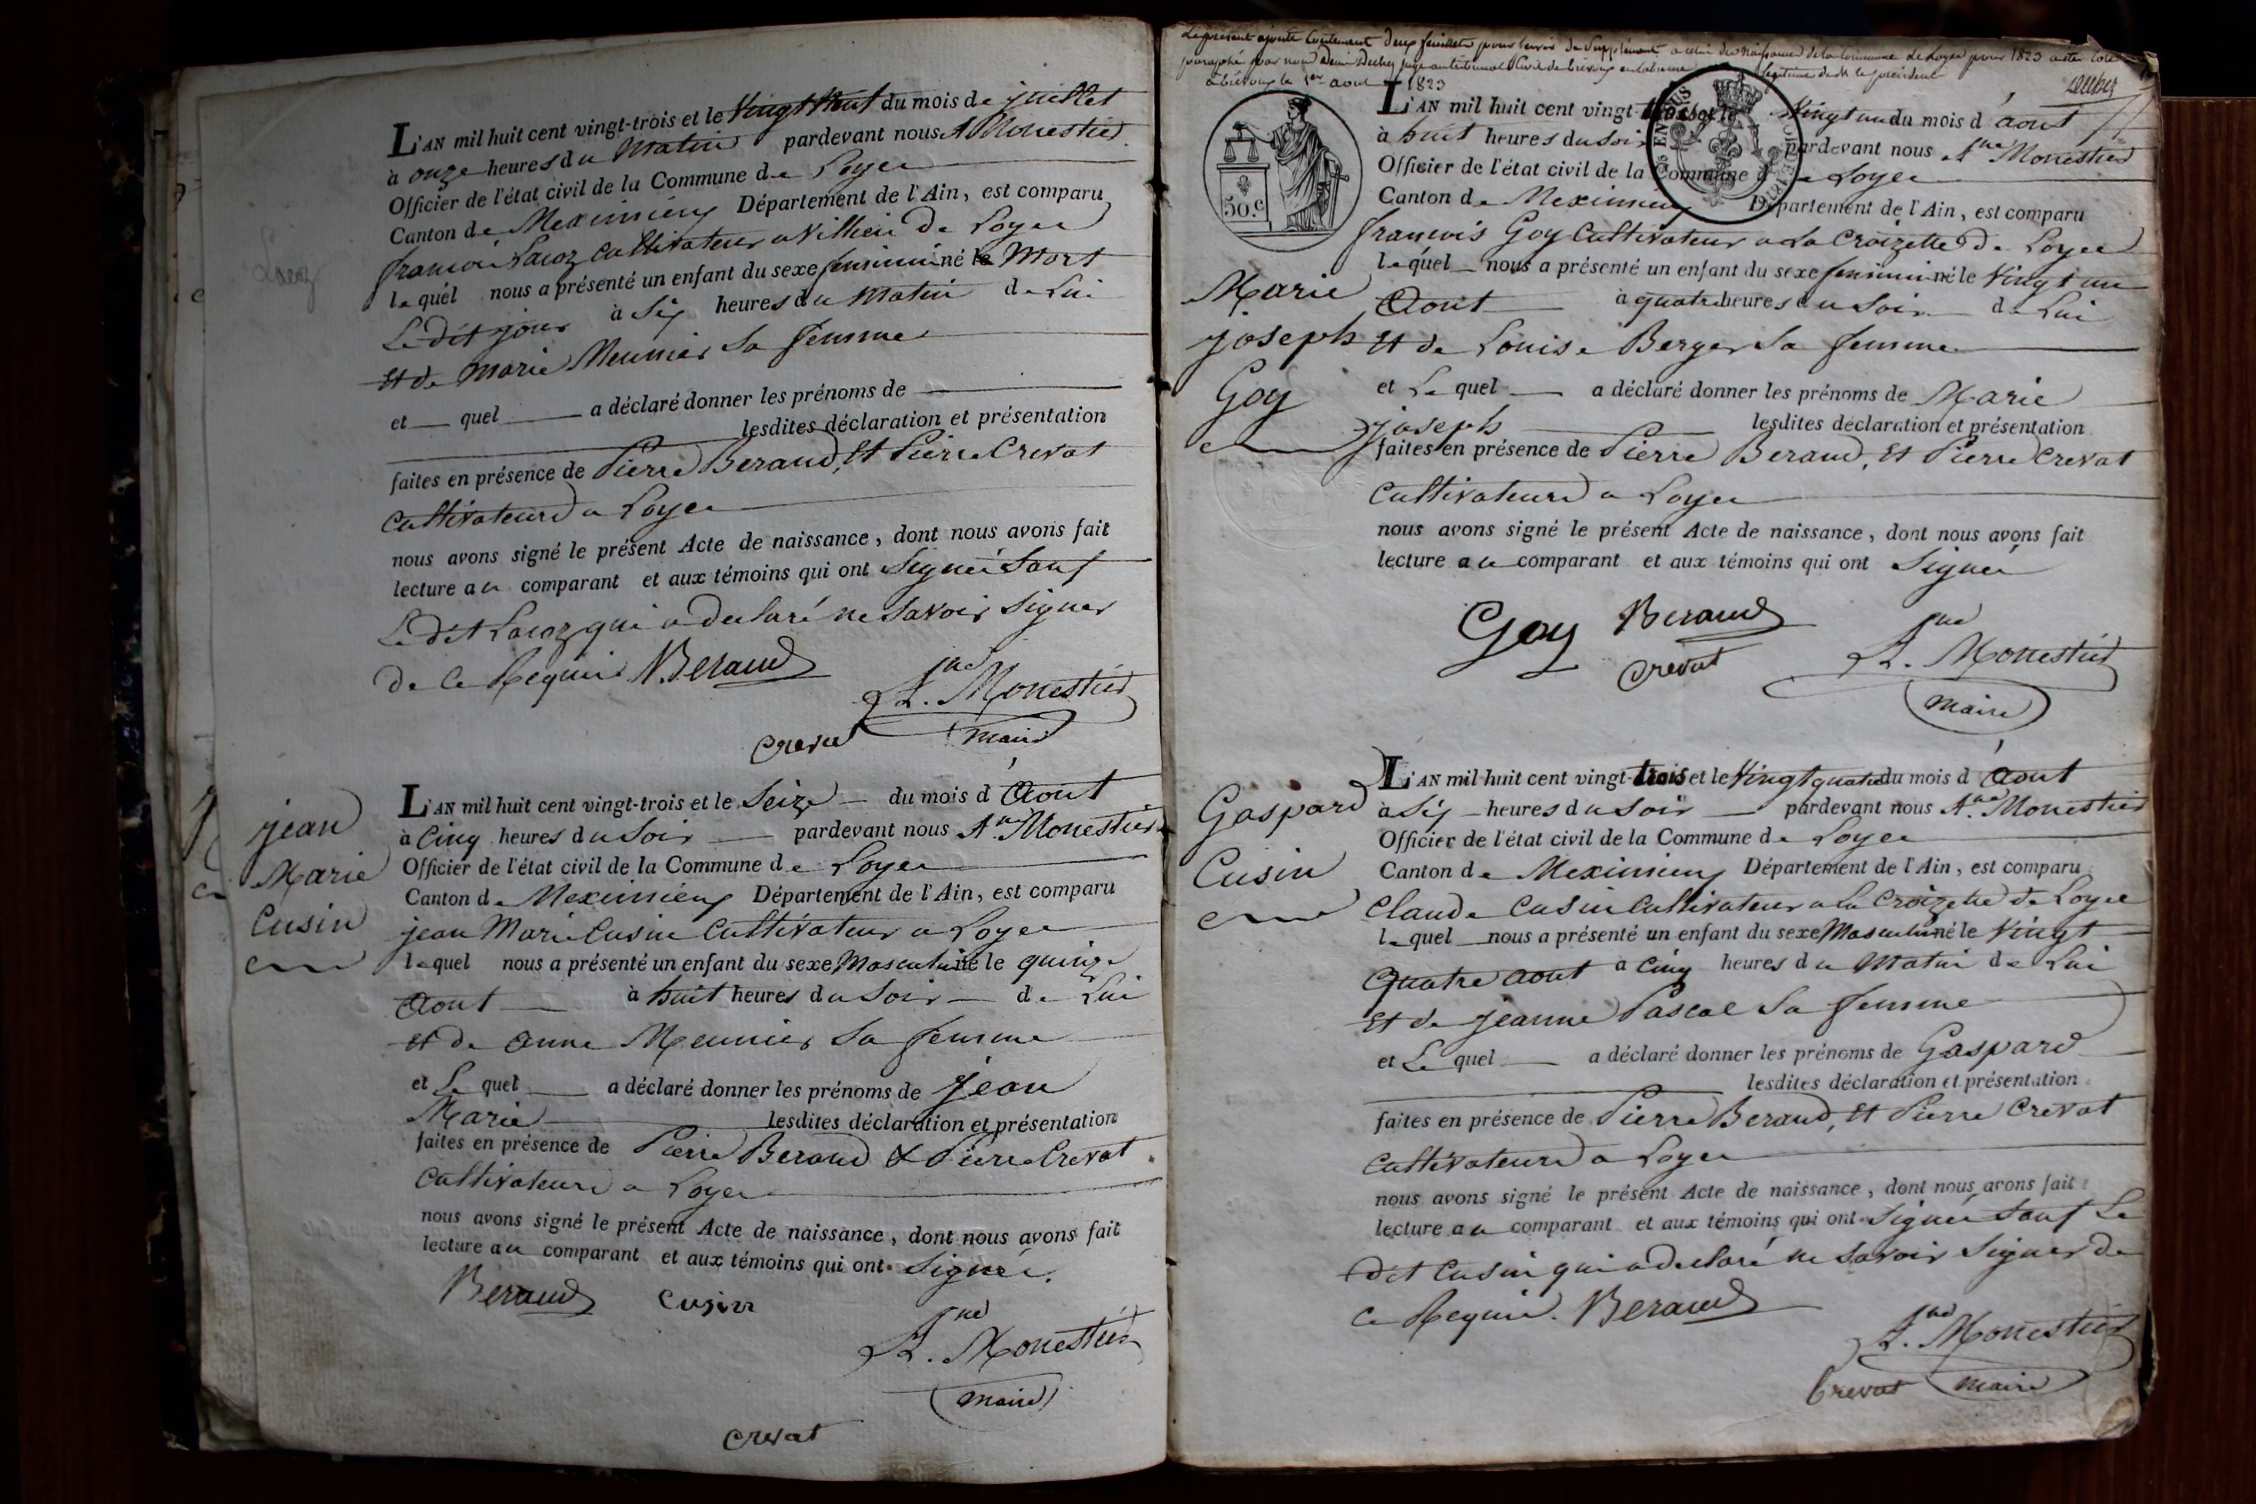 L'AN mil huit cent vingt-trois et le Vingt huit du mois de juillet
à onze heures du Matin pardevant nous A Monestier
Officier de l'état civil de la Commune de Loyes
Canton de Meximieux Département de l'Ain, est comparu
francois Lacoz Cultivateur a Villieu de Loyes
lequel nous a présenté un enfant du sexe feminin né Mort
Le dit jour à Six heures du Matin de Lui
Et de Marie Meunier Sa femme
et quel a déclaré donner les prénoms de
lesdites déclaration et présentation
faites en présence de Pierre Beraud, Et Pierre Crevat
Cultivateurs a Loyes
nous avons signé le présent Acte de naissance, dont nous avons fait
lecture au comparant et aux témoins qui ont Signés Sauf
Le dit Lacoz qui a declaré ne Savoir Signer
de Ce Requis Beraud
Ane. Monestier
Crevat maire
Lacoz
jean
Marie
Cusin
L'AN mil huit cent vingt-trois et le Seize du mois d'Aout
à Cinq heures du Soir pardevant nous Ane. Monestier
Officier de l'état civil de la Commune de Loyes
Canton de Meximieux Département de l'Ain, est comparu
jean Marie Cusin Cultivateur a Loyes
lequel nous a présenté un enfant du sexe Masculin né le quinze
Aout à huit heures du Soir de Lui
Et de Anne Meunier Sa femme
et Le quel a déclaré donner les prénoms de jean
Marie lesdites déclaration et présentation
faites en présence de Pierre Beraud & Pierre Crevat
Cultivateurs a Loyes
nous avons signé le présent Acte de naissance, dont nous avons fait
lecture au comparant et aux témoins qui ont Signés.
Beraud Cusin
Ane. Monestier
maire
Crevat
Le présent ajouté Contenant deux feuillets pour Servir de Supplément a celui des Naissances de la Commune de Loyes pour 1823 a été coté
paraphé par nous juge au tribunal Civil de Trévoux legitime de M le president
a Trévoux le 1er aout 1823
50.c
EN SUS
Marie
joseph
Goy
L'AN mil huit cent vingt-trois et le Vingt un du mois d'aout
à huit heures du Soir pardevant nous Ane Monestier
Officier de l'état civil de la Commune de Loyes
Canton de Meximieux Département de l'Ain, est comparu
francois Goy Cultivateur a La Croizette de Loyes
lequel nous a présenté un enfant du sexe feminin né le Vingt un
Aout à quatre heures du Soir de Lui
Et de Louise Berger Sa femme
et Le quel a déclaré donner les prénoms de Marie
joseph lesdites déclaration et présentation
faites en présence de Pierre Beraud, Et Pierre Crevat
Cultivateurs a Loyes
nous avons signé le présent Acte de naissance, dont nous avons fait
lecture au comparant et aux témoins qui ont Signés
Goy Beraud
Crevat Ane. Monestier
maire
Gaspard
Cusin
L'AN mil huit cent vingt-trois et le Vingt quatre du mois d'Aout
à Six heures du Soir pardevant nous Ane. Monestier
Officier de l'état civil de la Commune de Loyes
Canton de Meximieux Département de l'Ain, est comparu
Claude Cusin Cultivateur a La Croizette de Loyes
lequel nous a présenté un enfant du sexe Masculin né le Vingt
Quatre Aout à Cinq heures du Matin de Lui
Et de jeanne Pascal Sa femme
et Le quel a déclaré donner les prénoms de Gaspard
lesdites déclaration et présentation
faites en présence de Pierre Beraud, Et Pierre Crevat
Cultivateurs a Loyes
nous avons signé le présent Acte de naissance, dont nous avons fait
lecture au comparant et aux témoins qui ont Signés Sauf Le
dit Cusin qui a declaré ne Savoir Signer de
Ce Requis. Beraud
Ane. Monestier
Crevat maire